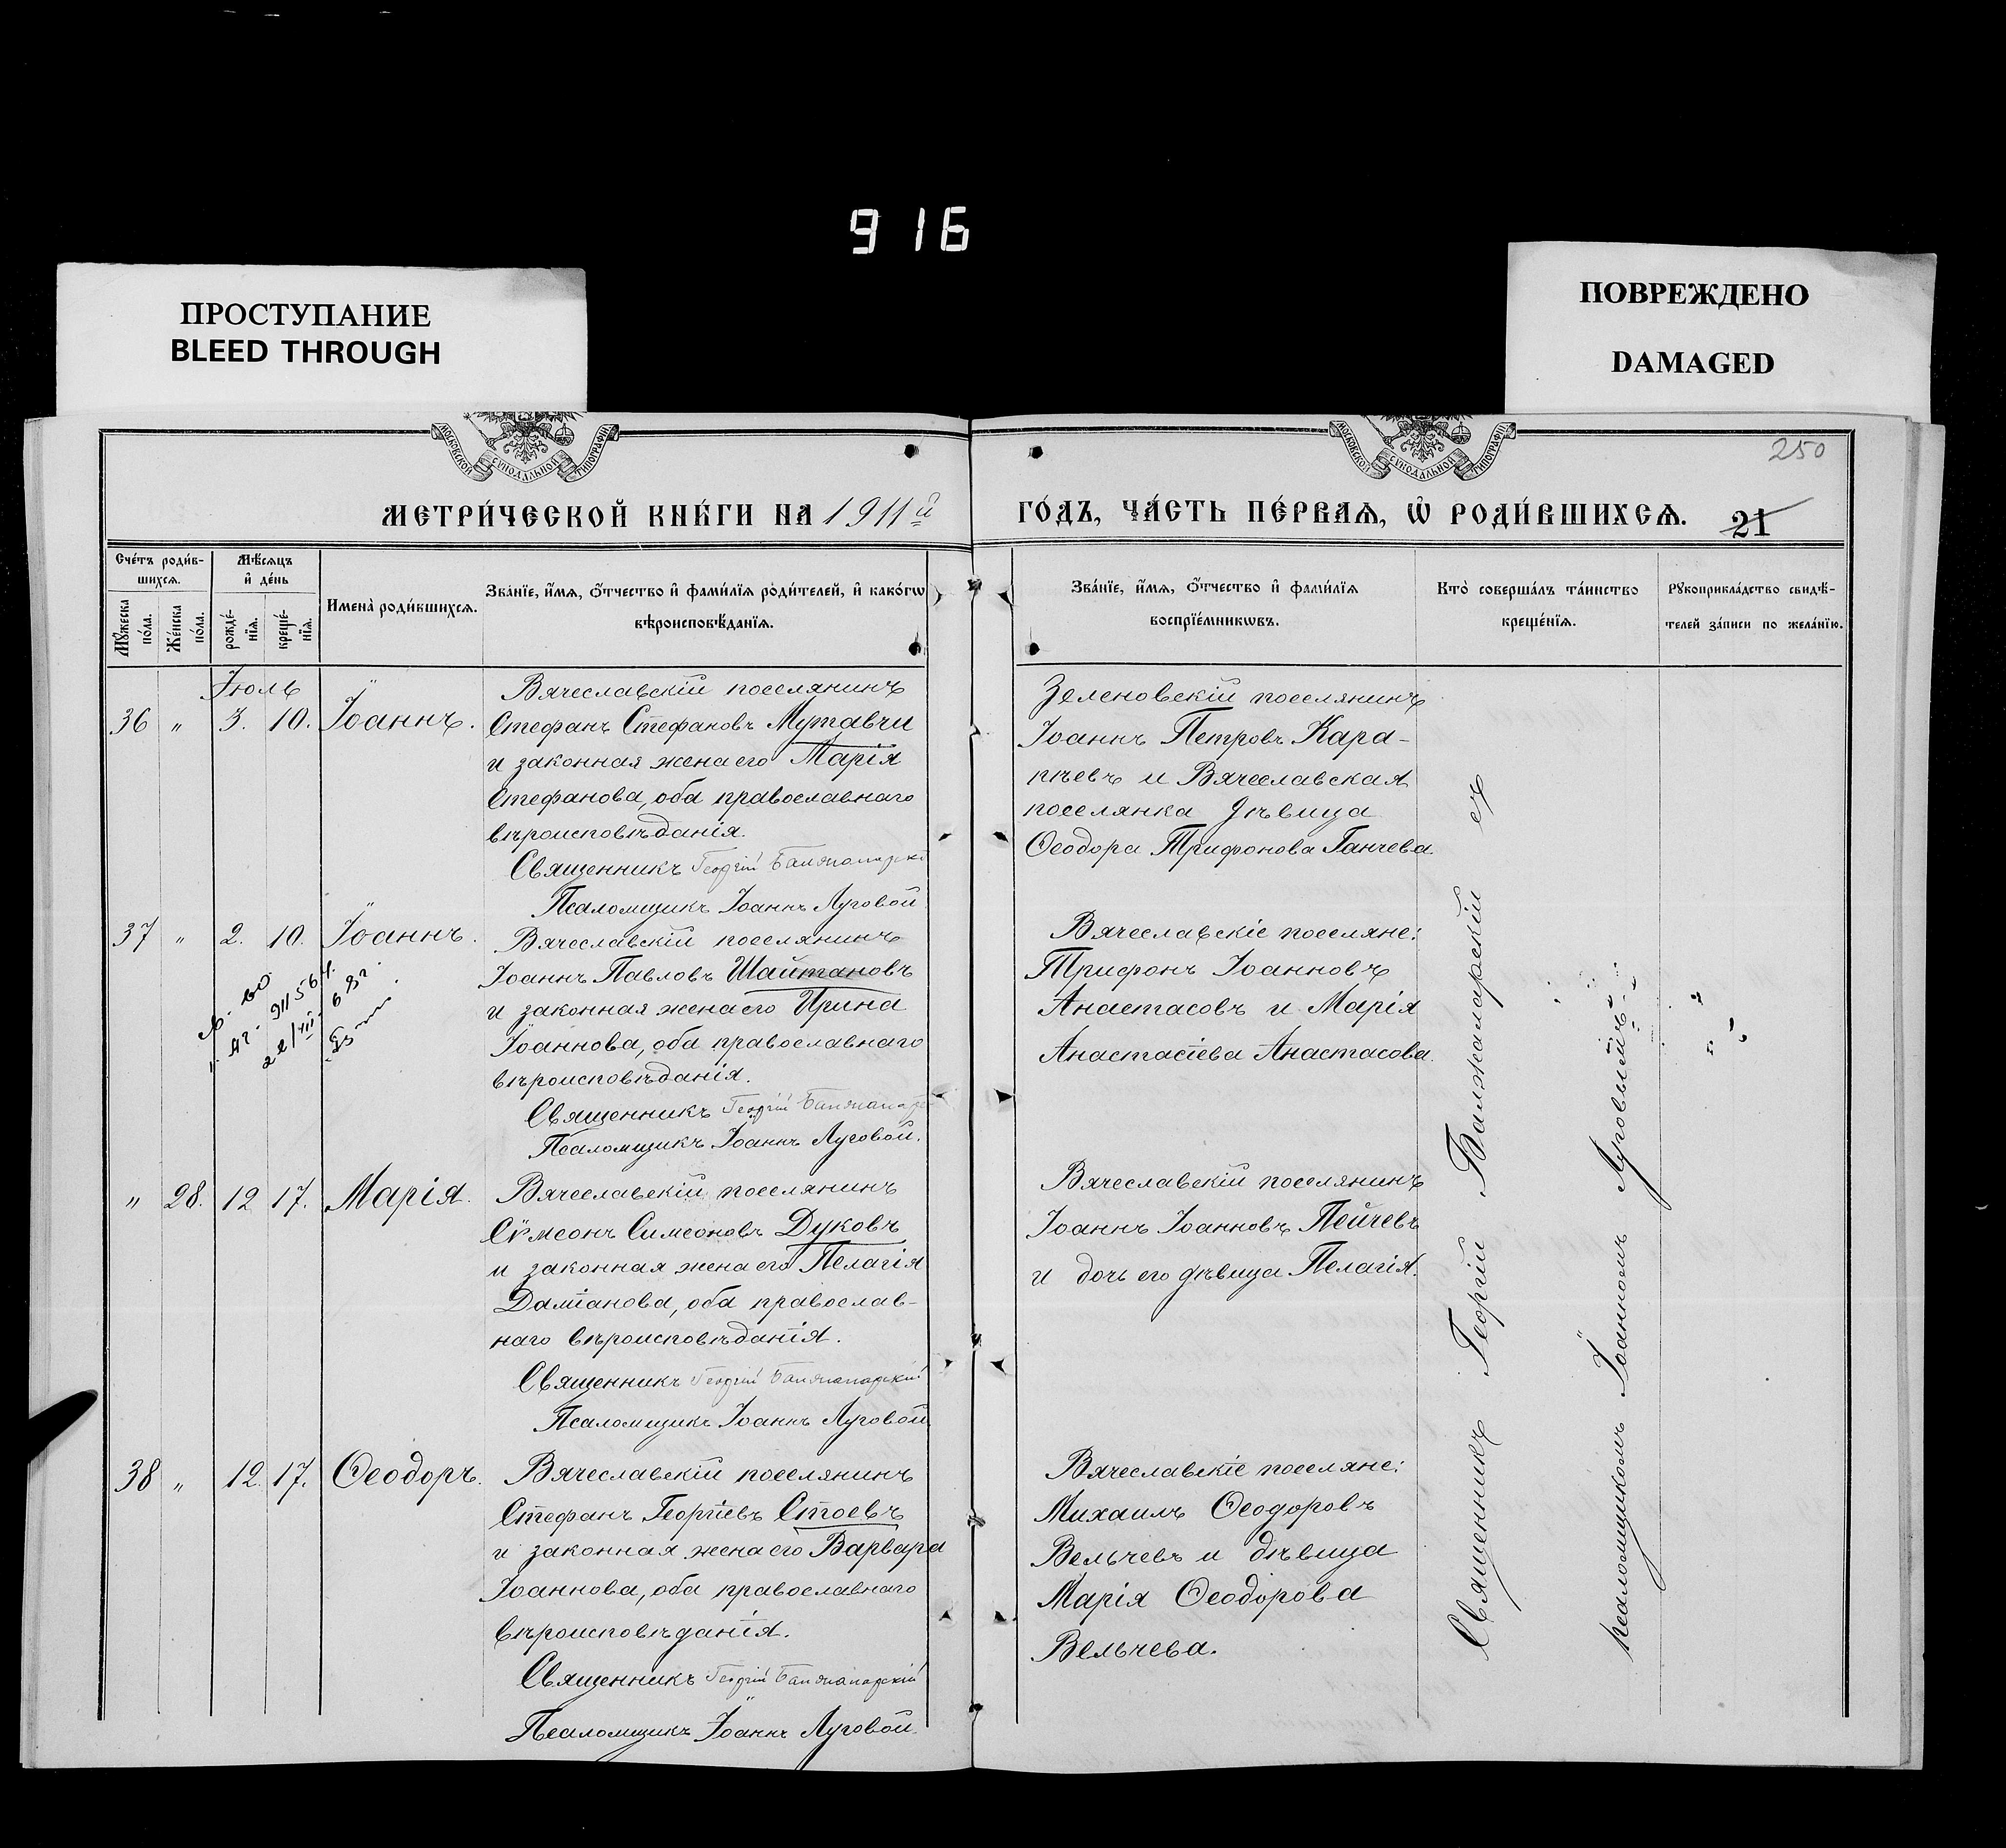 916
ПРОСТУПАНИЕ
BLEED THROUGH
ПОВРЕЖДЕНО
DAMAGED
МОСКОВСКОЙ СУНОДАЛЬНОЙ ТИПОГРАФІИ
МОСКОВСКОЙ СУНОДАЛЬНОЙ ТИПОГРАФІИ
250
МЕТРИ́ЧЕСКОЙ КНИ́ГИ НА 1911й
ГО́ДЪ, ЧА́СТЬ ПЕ́РВАѦ, Ѡ҆ РОДИ́ВШИХСѦ.
21
Сче́тъ роди́в-
шихсѧ.
Мꙋ́жеска
по́ла.
Же́нска
по́ла.
Мѣ́сѧцъ
и҆ де́нь
рожде́-
нїѧ.
креще́-
нїѧ.
Имена̀ роди́вшихсѧ.
Зва́нїе, и҆́мѧ, ѻ҆́тчество и҆ фами́лїѧ роди́телей, и҆ како́гѡ
вѣроисповѣ́данїѧ.
Зва́нїе, и҆́мѧ, ѻ҆́тчество и҆ фами́лїѧ
воспрїе́мникѡвъ.
Кто̀ соверша́лъ та́инство
креще́нїѧ.
Рꙋкоприкла́дство свидѣ́-
телей за́писи по жела́нїю.
Іюль
36 „ 3. 10. Іоаннъ.
Вячеславскій поселянинъ
Стефанъ Стефановъ Мутавчи
и законная жена его Марія
Стефанова, оба православнаго
вѣроисповѣданія.
Священникъ Георгій
Псаломщикъ Іоаннъ Луговой
Зеленовскій поселянинъ
Іоаннъ Петровъ Кара-
пѣевъ и Вячеславская
поселянка дѣвица
Ѳеодора Трифонова Ганчева
37 „ 2. 10. Іоаннъ.
Вячеславскій поселянинъ
Іоаннъ Павловъ Шайтановъ
и законная жена его Ирина
Іоаннова, оба православнаго
вѣроисповѣданія.
Священникъ Георгій
Псаломщикъ Іоаннъ Луговой.
Вячеславскіе поселяне:
Трифонъ Іоанновъ
Анастасовъ и Марія
Анастасіева Анастасова.
„ 28. 12 17. Марія.
Вячеславскій поселянинъ
Сѵмеонъ Симеоновъ Дуковъ
и законная жена его Пелагія
Даміанова, оба православ-
наго вѣроисповѣданія.
Священникъ Георгій
Псаломщикъ Іоаннъ Луговой
Вячеславскій поселянинъ
Іоаннъ Іоанновъ Пейчевъ
и дочь его дѣвица Пелагія.
38 „ 12. 17. Ѳеодоръ.
Вячеславскій поселянинъ
Стефанъ Георгіевъ Стоевъ
и законная жена его Варвара
Іоаннова, оба православнаго
вѣроисповѣданія.
Священникъ Георгій
Псаломщикъ Іоаннъ Луговой
Вячеславскіе поселяне:
Михаилъ Ѳеодоровъ
Вельчевъ и дѣвица
Марія Ѳеодорова
Вельчева.
Священникъ Георгій съ
псаломщикомъ Іоанномъ Луговымъ